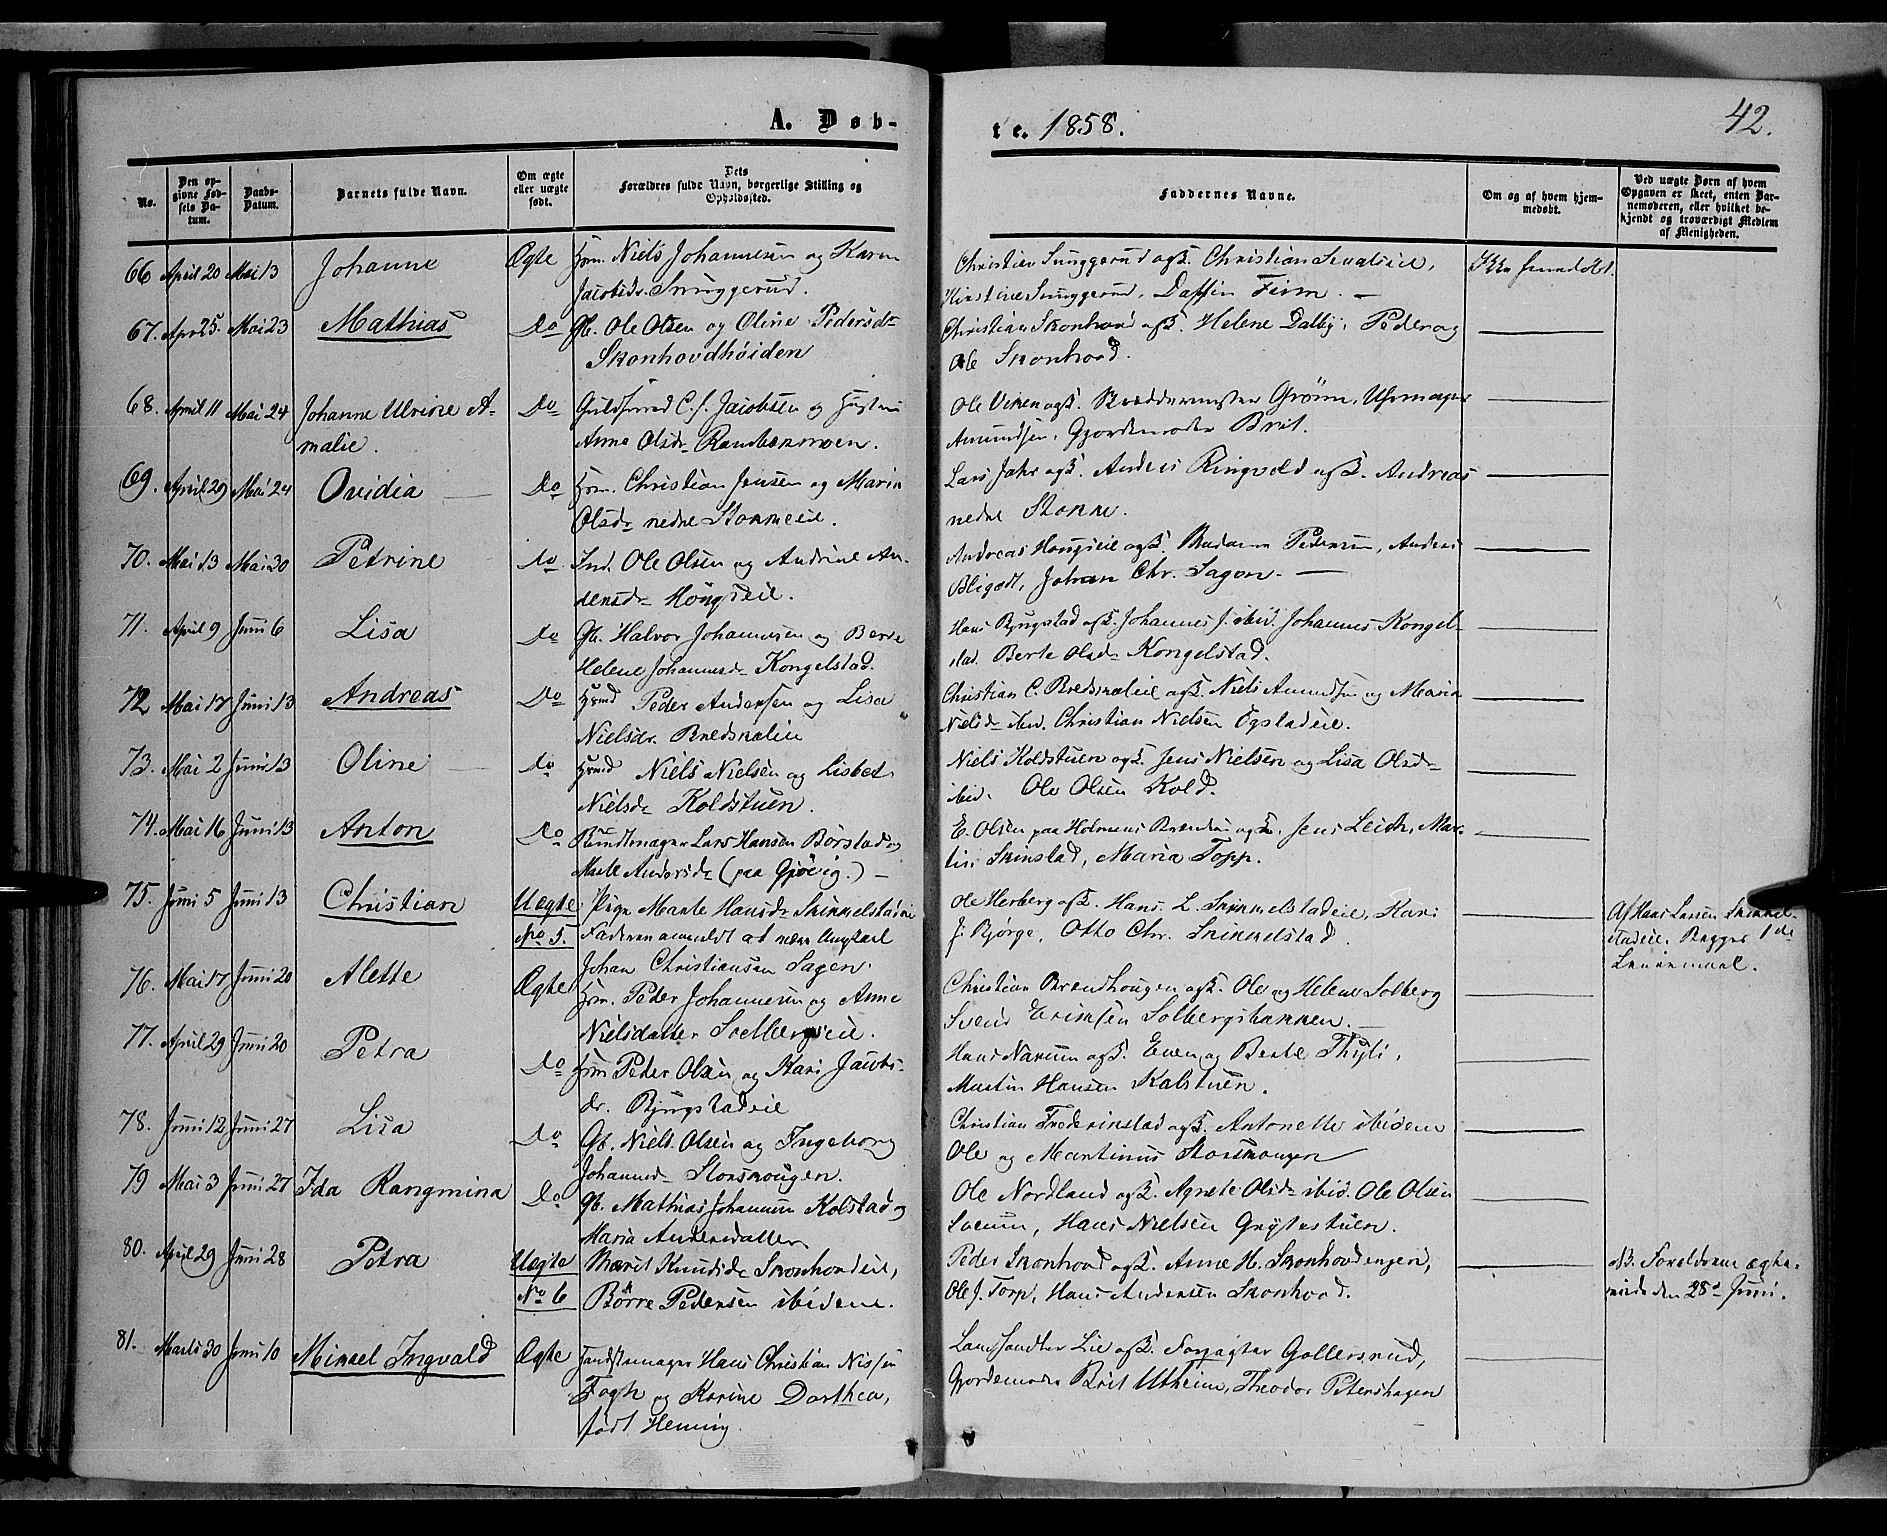 A. Døb-
te. 1858.
42.
No.
Den opgivne Fødsels Datum.
Daabs-Datum.
Barnets fulde Navn.
Om ægte eller uægte født.
Dets Forældres fulde Navn, borgerlige Stilling og Opholdssted.
Faddernes Navne.
Om og af hvem hjemmedøbt.
Ved uægte Børn af hvem Opgaven er skeet, enten Barnemoderen, eller hvilket bekjendt og troværdigt Medlem af Menigheden.
66 April 20 Mai 13 Johanne Ægte Hrm. Niels Johannesen og Karen
Jacobsdr. Snuggerud.
Christian Snuggerud og K. Christian
Kirstine Snuggerud,
67. Apr 25. Mai 23 Mathias Do Gb. Ole Olsen og Oline Pedersdr
Skonhovdhøiden
Christian Skonhovd og K. Helene Dalby, Peder og
Ole Skonhovd.
68. April 11 Mai 24 Johanne Ulrine A-
malie.
Do C. J. Jacobsen og Hustru
Anne Olsdr
Ole Viken og K. Skræddermester Grønn, Uhrmager
Amundsen, Gjordemoder Brit.
69. April 29 Mai 24 Ovidia Do Hrm. Christian Jensen og Maria
Olsdr nedre
Lars Jahr og K. Anders Ringvold og K. Andreas
nedre
70. Mai 13 Mai 30 Petrine Do Ind. Ole Olsen og Andrine An-
densdr Hougseie.
Andreas Hougseie og K. Madame Petersen, Anders
Bligodt, Johan Chr. Sagen.
71. April 9 Juni 6 Lisa Do Gb. Halvor Johannesen og Berte
Helene Johannesdr Kongelstad.
Hans Bjugstad og K. Johannes J. ibid. Johannes Kongel-
stad. Berte Olsdr Kongelstad.
72 Mai 17 Juni 13 Andreas Do Hrmd Peder Andersen og Lisa
Nielsdr.
Christian C. og K. Niels Amundsen og Maria
Nielsdr ibid. Christian Nielsen Ögstadeie.
73. Mai 2 Juni 13 Oline Do Hrmd Niels Nielsen og Lisbet
Nielsdr Koldstuen.
Niels Koldstuen og K. Jens Nielsen og Lisa Olsdr
ibid. Ole Olsen Kold.
74. Mai 16 Juni 13 Anton Do Buntmager Lars Hansen Börstad og
Marte Andersdr (paa Gjövig.)
E. Olsen paa Holmens Brænderi og K. Jens Leich, Mar-
tin Skinstad, Maria Topp.
75. Juni 5 Juni 13 Christian Uægte
No 5.
Pige Marte Hansdr Skimmelstadeie
Faderen anmeldt at være Ungkarl
Johan Christiansen Sagen.
Ole Herberg og K. Hans L. Skimmelstadeie, Kari
J. Bjørge, Otto Chr. Skimmelstad.
Af Hans Larsen Skimmel-
stadeie. Begges 1ste
Leiermaal.
76. Mai 17 Juni 20 Alette Ægte Hrm. Peder Johannesen og Anne
Nielsdatter Solbergseie.
Christian Brendhougen og K. Ole og Helene Solberg
Svend Eriksen Solbergshammen.
77. April 29 Juni 20 Petra Do Hrm Peder Olsen og Kari Jacobs-
dr. Bjugstadeie
Hans Narum og K. Even og Berte Thyli,
Martin Hansen Kalstuen.
78. Juni 12 Juni 27 Lisa Do Gb. Niels Olsen og Ingeborg
Johannesdr Storskougen.
Christian Frederikstad og K. Antonette ibidem
Ole og Martinus Storskougen
79 Mai 3 Juni 27 Ida Rangmina Do Gb. Mathias Johannesen Kolstad og
Maria Andersdatter
Ole Nordland og K. Agnete Olsdr ibid. Ole Olsen
Sveum, Hans Nielsen Grytestuen.
80. April 29 Juni 28 Petra Uægte
No 6
Marit Knudsdr Skonhovdeie,
Börre Pedersen ibidem.
Peder Skonhovd og K. Anne H. Skonhovdengen,
Ole J. Torp, Hans Andersen Skonhovd.
NB. Foreldrene ægte-
viede den 28de Juni.
81. Marts 30 Juni 10 Mikael Ingvald Ægte Hans Christian Nissen
Fogh og Karine Dorthea,
født Heming.
Landhandler Lie og K. Forpagter Gollersrud,
Gjordemoder Brit Utheim, Theodor Petershagen